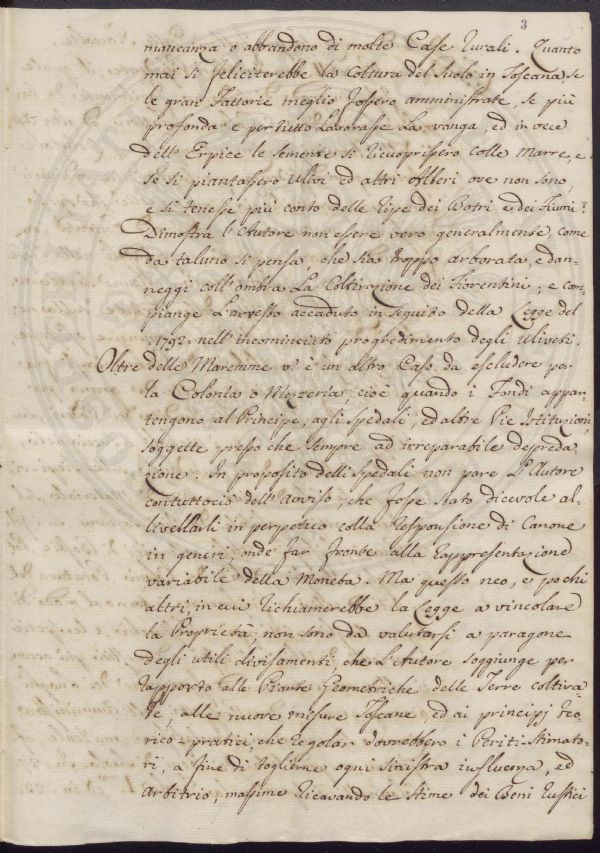 3
mancanza o abbandono di molte Case rurali. Quanto
mai si feliciterebbe la Coltura del Suolo in Toscana, se
le gran Fattorie meglio fossero amministrate, se più
profonda e per tutto Lavorasse La vanga, ed in vece
dell'Erpice le semente si ricuoprissero colle Marre, e
se si piantassero Ulivi ed altri Alberi ove non sono,
e si tenesse più conto delle ripe dei Botri e dei Fiumi?
Dimostra l'Autore non essere vero generalmente, come
da taluno si pensa che sia troppo arborata, e dan-
neggi coll'ombra La Coltivazione dei Fiorentini; e com-
piange l'arresto accaduto in seguito della Legge del
1792. nell'incominciato progredimento degli Uliveti.
Oltre delle Maremme v'è un altro Caso da escludere per
la Colonia o Mezzeria, cioè quando i Fondi appar-
tengono al Principe, agli spedali, ed altre Pie Istituzioni,
soggette presso che sempre ad irreparabile depreda-
zione. In proposito delli spedali non pare L'Autore
contuttociò dell'Avviso, che fosse stato dicevole al-
livellarli in perpetuo colla responsione di Canone
in generi, onde far fronte alla rappresentazione
variabile della Moneta. Ma questo neo, e pochi
altri, in cui richiamerebbe la Legge a vincolare
la Proprietà, non sono da valutarsi a paragone
degli utili divisamenti, che L'Autore soggiunge per
rapporto alle Piante Geometriche delle Terre coltiva-
te, alle nuove misure Toscane ed ai principj teo-
rico-pratici, che regolar dovrebbero i Periti Stimato-
ri, a fine di toglierne ogni sinistra influenza, ed
Arbitrio, massime ricavando le stime dei Beni rustici